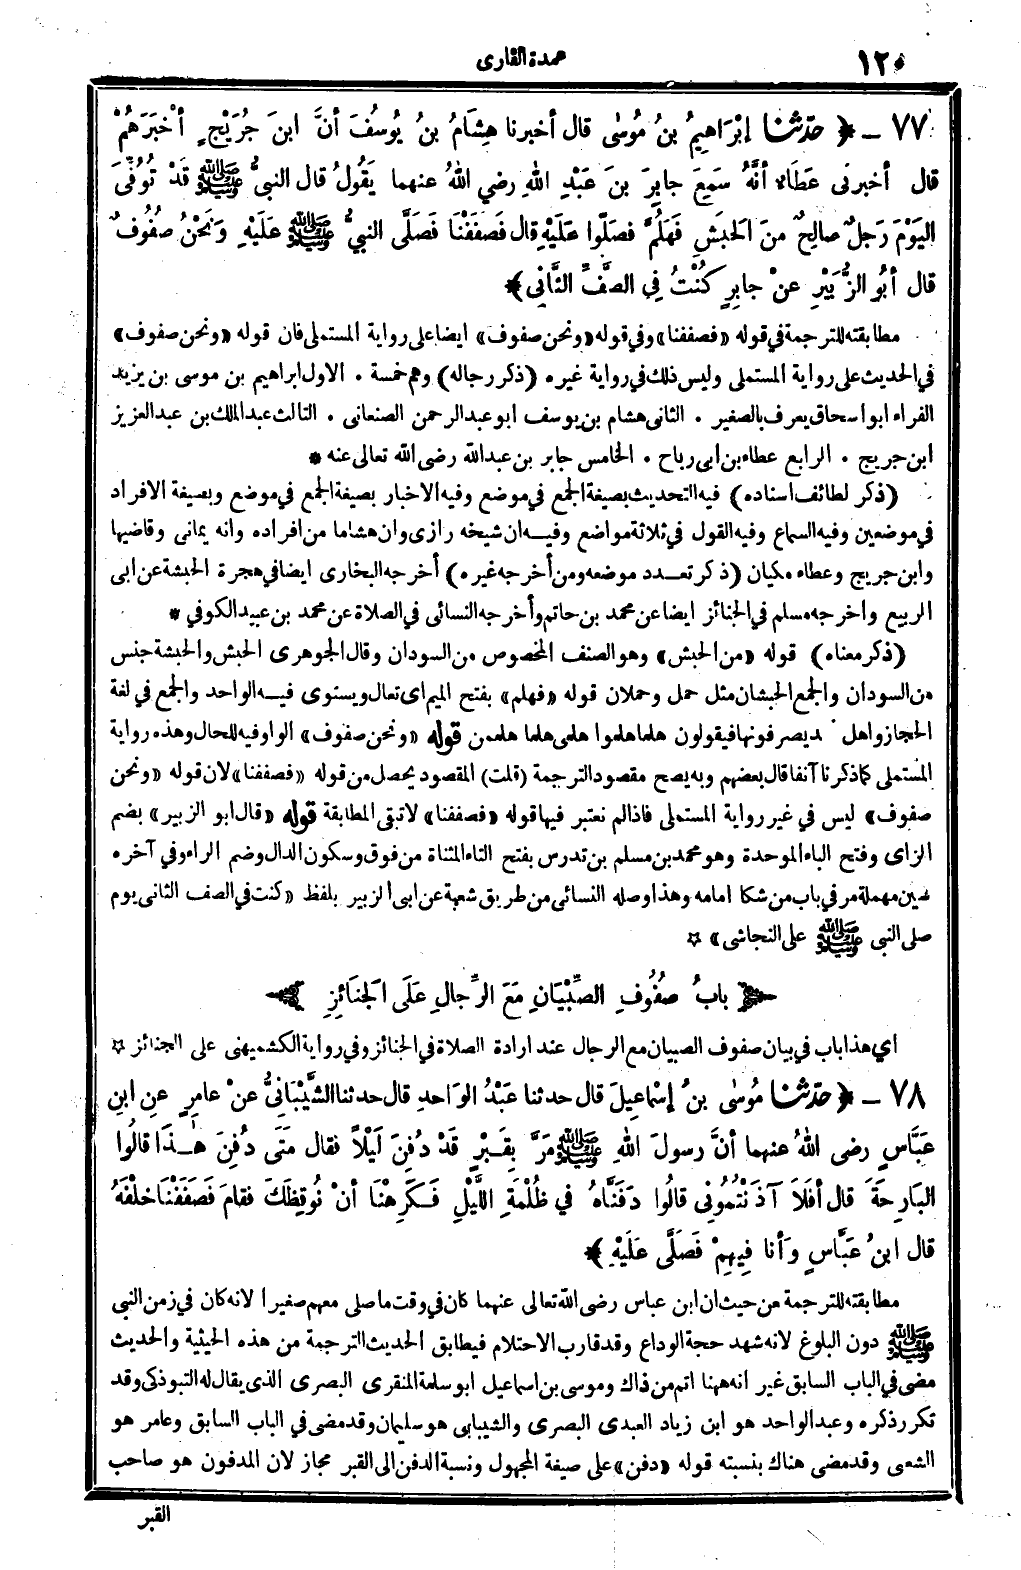 ١٢٠
عمدة القارى
٧٧ - ﴿ حدّثنا إبْرَاهِيمُ بنُ مُوسٰى قال أخبرنا هِشَامُ بنُ يُوسُفَ أنَّ ابنَ جُرَيْجٍ أخْبَرَهُمْ
قال أخبرنى عَطَاءٌ أنَّهُ سَمِعَ جابِرَ بنَ عَبْدِ اللهِ رضي اللهُ عنهما يَقُولُ قال النبيُّ ﷺ قَدْ تُوُفِّيَ
اليَوْمَ رَجلٌ صالِحٌ منَ الحَبَشِ فَهَلُمَّ فصَلّوا عَلَيْهِ قال فَصَفَفْنَا فَصَلَّى النبيُّ ﷺ عَلَيْهِ وَنَحْنُ صُفُوفٌ
قال أبُو الزُّبَيْرِ عنْ جابِرٍ كُنْتُ فِي الصَّفِّ الثَّانى ﴾
مطابقته للترجمة في قوله «فصففنا» وفي قوله «ونحن صفوف» ايضا على رواية المستملى فان قوله «ونحن صفوف»
في الحديث على رواية المستملى وليس ذلك في رواية غيره (ذكر رجاله) وهم خمسة . الاول ابراهيم بن موسى بن يزيد
الفراء ابو اسحاق يعرف بالصغير . الثانى هشام بن يوسف ابو عبد الرحمن الصنعانى . الثالث عبد الملك بن عبد العزيز
ابن جريج . الرابع عطاء بن ابى رباح . الخامس جابر بن عبد الله رضى الله تعالى عنه *
(ذكر لطائف اسناده) فيه التحديث بصيغة الجمع في موضع وفيه الاخبار بصيغة الجمع في موضع وبصيغة الافراد
في موضعين وفيه السماع وفيه القول في ثلاثة مواضع وفيه ان شيخه رازى وان هشاما من افراده وانه يمانى وقاضيها
وابن جريج وعطاء مكيان (ذكر تعدد موضعه ومن أخرجه غيره) أخرجه البخارى ايضا في هجرة الحبشة عن ابى
الربيع واخرجه مسلم في الجنائز ايضا عن محمد بن حاتم وأخرجه النسائى في الصلاة عن محمد بن عبيد الكوفي *
(ذكر معناه) قوله «من الحبش» وهو الصنف المخصوص من السودان وقال الجوهرى الحبش والحبشة جنس
من السودان والجمع الحبشان مثل حمل وحملان قوله «فهلم» بفتح الميم اى تعال ويستوى فيه الواحد والجمع في لغة
الحجاز واهل يصرفونها فيقولون هلما هلموا هلمى هلما هلممن قوله «ونحن صفوف» الواو فيه للحال وهذه رواية
المستملى كما ذكرنا آنفا قال بعضهم وبه يصح مقصود الترجمة (قلت) المقصود يحصل من قوله «فصففنا» لان قوله «ونحن
صفوف» ليس في غير رواية المستملى فاذا لم نعتبر فيها قوله «فصففنا» لا تبقى المطابقة قوله «قال ابو الزبير» بضم
الزاى وفتح الباء الموحدة وهو محمد بن مسلم بن تدرس بفتح التاء المثناة من فوق وسكون الدال وضم الراء وفي آخره
سين مهملة مر في باب من شكا امامه وهذا وصله النسائى من طريق شعبة عن ابى الزبير بلفظ «كنت في الصف الثانى يوم
صلى النبى ﷺ على النجاشى» *
﴿ بابُ صفُوفِ الصِّبْيَانِ مَعَ الرِّجالِ عَلَى الجَنَائِزِ ﴾
اي هذا باب في بيان صفوف الصبيان مع الرجال عند ارادة الصلاة في الجنائز وفي رواية الكشميهنى على الجنائز *
٧٨ - ﴿ حدّثنا مُوسٰى بنُ إسْماعِيلَ قال حدثنا عَبْدُ الوَاحدِ قال حدثنا الشَّيْبَانِيُّ عنْ عامِرٍ عنِ ابنِ
عبَّاسٍ رضى اللهُ عنهما أنَّ رسولَ اللهِ ﷺ مَرَّ بِقَبْرٍ قَدْ دُفِنَ لَيْلاً فقال مَتَى دُفِنَ هٰذَا قالُوا
البَارِحَةَ قال أفَلاَ آذَنْتُمُونِى قالُوا دَفَنَّاهُ في ظُلْمَةِ اللَّيْلِ فَكَرِهْنَا أنْ نُوقِظَكَ فقامَ فَصَفَفْنَا خلْفَهُ
قال ابنُ عبَّاسٍ وَأنا فِيهِمْ فَصَلَّى عَلَيْهِ ﴾
مطابقته للترجمة من حيث ان ابن عباس رضى الله تعالى عنهما كان في وقت ما صلى معهم صغيرا لانه كان في زمن النبى
ﷺ دون البلوغ لانه شهد حجة الوداع وقد قارب الاحتلام فيطابق الحديث الترجمة من هذه الحيثية والحديث
مضى في الباب السابق غير انه ههنا اتم من ذاك وموسى بن اسماعيل ابو سلمة المنقرى البصرى الذى يقال له التبوذكى وقد
تكرر ذكره وعبد الواحد هو ابن زياد العبدى البصرى والشيبانى هو سليمان وقد مضى في الباب السابق وعامر هو
الشعبى وقد مضى هناك بنسبته قوله «دفن» على صيغة المجهول ونسبة الدفن الى القبر مجاز لان المدفون هو صاحب
القبر